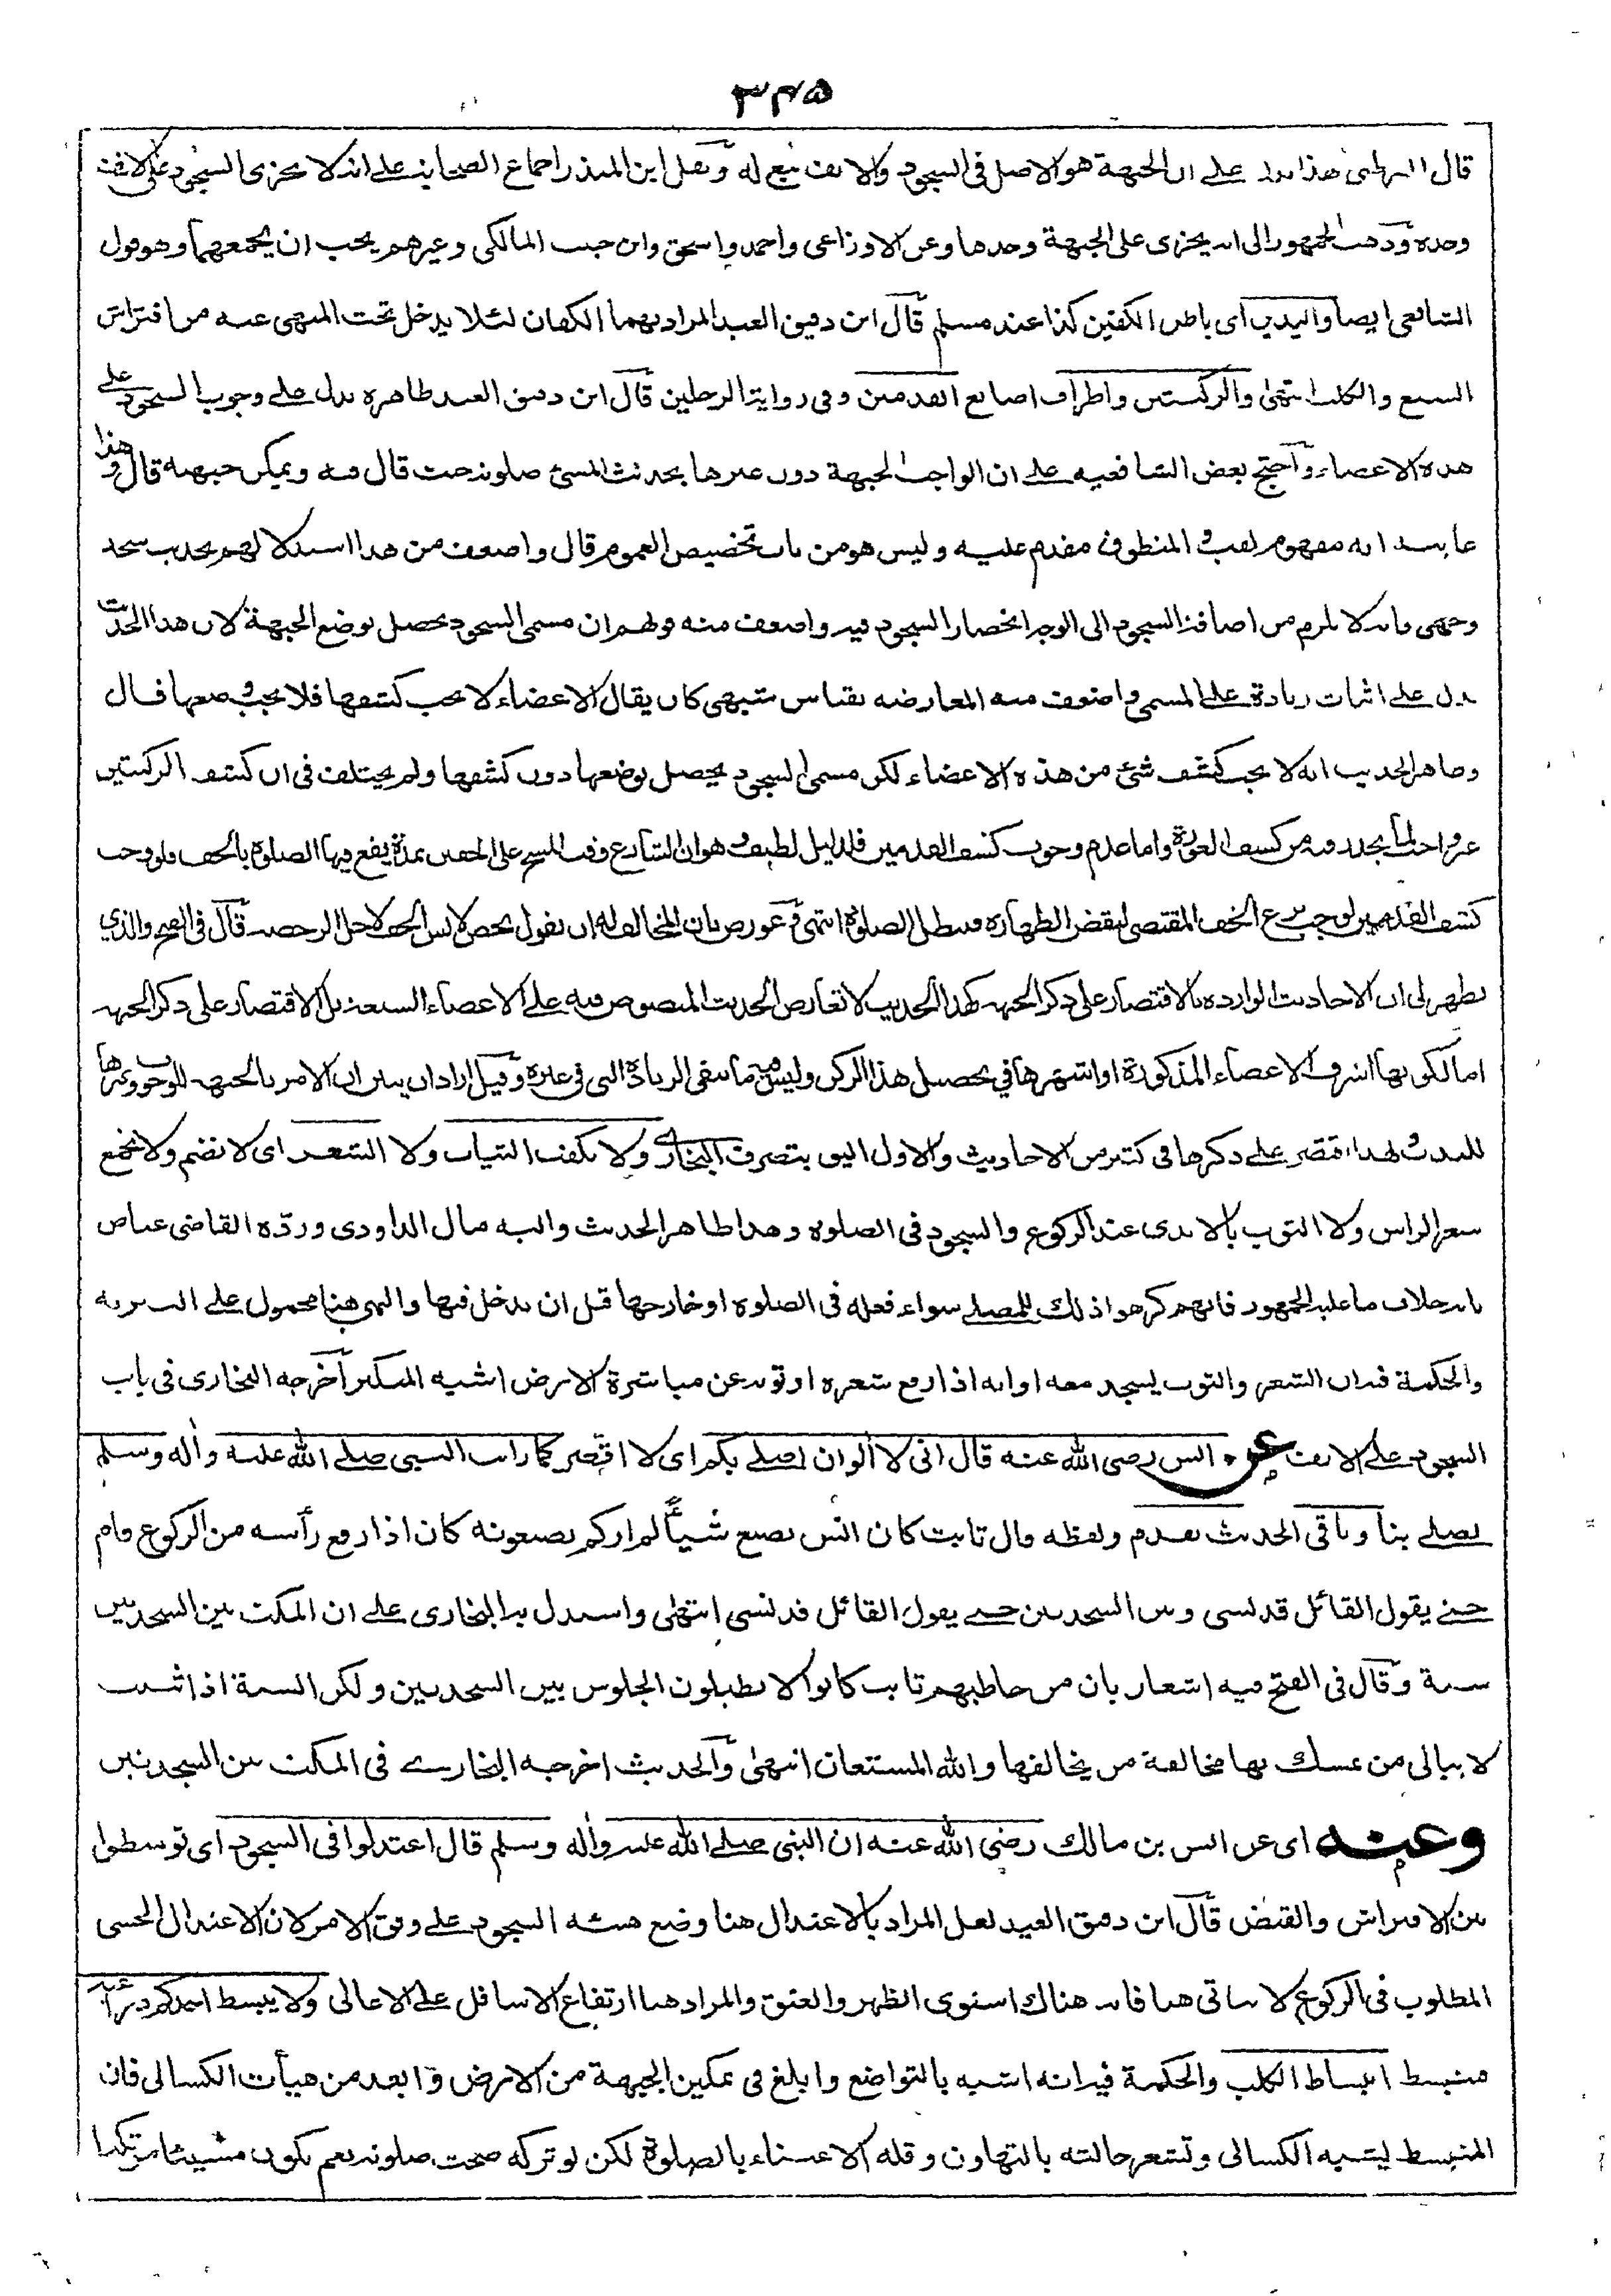 ٣٤٥
قال القرطبى هذا يدل على ان الجبهة هو الاصل فى السجود والانف تبع له ونقل ابن المنذر اجماع الصحابة على انه لا يجزى السجود على الانف
وحده وذهب الجمهور الى انه يجزى على الجبهة وحدها وعن الاوزاعى واحمد واسحق وابن حبيب المالكى وغيرهم يجب ان يجمعهما وهو قول
الشافعى ايضا واليدين اى باطن الكفين كذا عند مسلم قال ابن دقيق العيد المراد بهما الكفان لئلا يدخل تحت المنهى عنه من افتراش
السبع والكلب انتهى والركبتين واطراف اصابع القدمين وفى رواية الرجلين قال ابن دقيق العيد ظاهره يدل على وجوب السجود على
هذه الاعضاء واحتج بعض الشافعيه على ان الواجب الجبهة دون غيرها بحديث المسئ صلوته حيث قال فيه ويمكن جبهته قال وهذا
غايته انه مفهوم لقب والمنطوق مقدم عليه وليس هو من باب تخصيص العموم قال واضعف من هذا استدلالهم بحديث سجد
وجهى فانه لا يلزم من اضافة السجود الى الوجه انحصار السجود فيه واضعف منه قولهم ان مسمى السجود يحصل بوضع الجبهة لان هذا الحديث
يدل على اثبات زيادة على المسمى واضعف منه المعارضه بقياس شبهى كان يقال الاعضاء لا يجب كشفها فلا يجب وضعها قال
وظاهر الحديث انه لا يجب كشف شئ من هذه الاعضاء لكن مسمى السجود يحصل بوضعها دون كشفها ولم يختلف فى ان كشف الركبتين
غير واجب لما يحذر فيه من كشف العورة واما عدم وجوب كشف القدمين فلدليل لطيف وهو ان الشارع وقت المسح على الخفين بمدة يقع فيها الصلوة بالخف فلو وجب
كشف القدمين لوجب نزع الخف المقتضى لنقض الطهاره وتبطل الصلوة انتهى وعورض بان المخالف له ان يقول يخص لابس الخف لاجل الرخصه قال فى الفتح والذي
يظهر لى ان الاحاديث الوارده بالاقتصار على ذكر الجبهه كهذا الحديث لا تعارض الحديث المنصوص فيه على الاعضاء السبعة بل الاقتصار على ذكر الجبهه
اما لكونها اشرف الاعضاء المذكورة او اشهرها فى تحصيل هذا الركن وليس فيه ما ينفى الزيادة التى فى غيره وقيل اراد ان يبين ان الامر بالجبهه للوجوب وغيرها
للندب ولهذا اقتصر على ذكرها فى كثير من الاحاديث والاول اليق بتصرف البخارى ولا نكفت الثياب ولا الشعر اى لا نضم ولا نجمع
شعر الراس ولا الثوب بالايدى عند الركوع والسجود فى الصلوه وهذا ظاهر الحديث واليه مال الداودى وردّه القاضى عياض
بانه خلاف ما عليه الجمهور فانهم كرهوا ذلك للمصلى سواء فعله فى الصلوة او خارجها قبل ان يدخل فيها والنهى هنا محمول على التنزيه
والحكمة فيه ان الشعر والثوب يسجد معه او انه اذا رفع شعره او ثوبه عن مباشرة الارض اشبه المتكبر اخرجه البخارى فى باب
السجود على الانف عن انس رضى الله عنه قال انى لا آلو ان اصلى بكم اى لا اقصر كما رايت النبى صلى الله عليه وآله وسلم
يصلى بنا وباقى الحديث تقدم ولفظه قال ثابت كان انس يصنع شيأً لم اركم تصنعونه كان اذا رفع رأسه من الركوع قام
حتى يقول القائل قد نسى وبين السجدتين حتى يقول القائل قد نسى انتهى واستدل به البخارى على ان المكث بين السجدتين
سنة وقال فى الفتح فيه اشعار بان من خاطبهم ثابت كانوا لا يطيلون الجلوس بين السجدتين ولكن السنة اذا ثبتت
لا يبالى من تمسك بها مخالفة من يخالفها والله المستعان انتهى والحديث اخرجه البخارى فى المكث بين السجدتين
وعنه اى عن انس بن مالك رضى الله عنه ان النبى صلى الله عليه وآله وسلم قال اعتدلوا فى السجود اى توسطوا
بين الافتراش والقبض قال ابن دقيق العيد لعل المراد بالاعتدال هنا وضع هيئه السجود على وفق الامر لان الاعتدال الحسى
المطلوب فى الركوع لا يتاتى هنا فانه هناك استوى الظهر والعنق والمراد هنا ارتفاع الاسافل على الاعالى ولا يبسط احدكم ذراعيه
فينبسط انبساط الكلب والحكمة فيه انه اشبه بالتواضع وابلغ فى تمكين الجبهة من الارض وابعد من هيأت الكسالى فان
المنبسط ليشبه الكسالى وتشعر حالته بالتهاون وقله الاعتناء بالصلوة لكن لو تركه صحت صلوته نعم يكون مسيئا مرتكبا